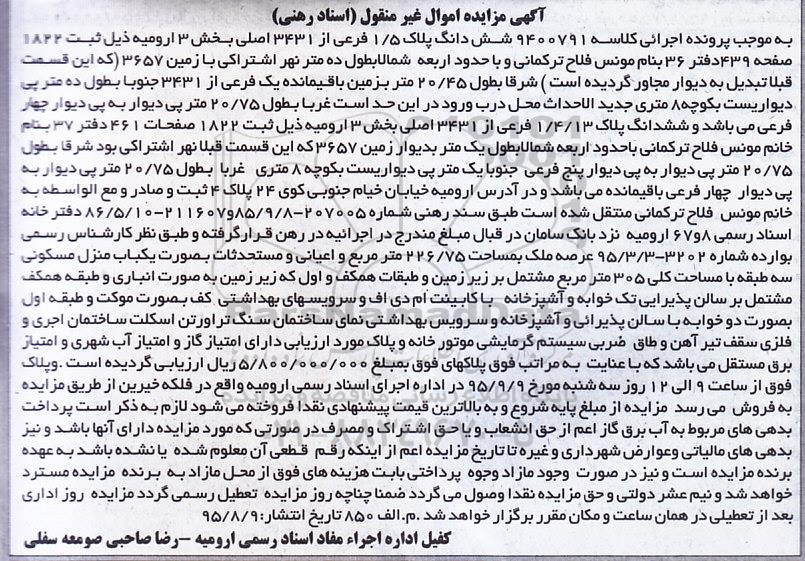 آگهی مزایده اموال غیر منقول (اسناد رهنی)
به موجب پرونده اجرائی کلاسه ۹۴۰۰۷۹۱ شش دانگ پلاک ۱/۵ فرعی از ۳۴۳۱ اصلی بخش ۳ ارومیه ذیل ثبت ۱۸۲۲
صفحه ۴۳۹دفتر ۳۶ بنام مونس فلاح ترکمانی و با حدود اربعه شمالابطول ده متر نهر اشتراکی با زمین ۳۶۵۷ (که این قسمت
قبلا تبدیل به دیوار مجاور گردیده است ) شرقا بطول ۲۰/۴۵ متر بزمین باقیمانده یک فرعی از ۳۴۳۱ جنوبا بطول ده متر پی
دیواریست بکوچه۸ متری جدید الاحداث محل درب ورود در این حد است غربا بطول ۲۰/۷۵ متر پی دیوار به پی دیوار چهار
فرعی می باشد و ششدانگ پلاک ۱/۴/۱۳ فرعی از ۳۴۳۱ اصلی بخش ۳ ارومیه ذیل ثبت ۱۸۲۲ صفحات ۴۶۱ دفتر ۳۷ بنام
خانم مونس فلاح ترکمانی باحدود اربعه شمالابطول یک متر بدیوار زمین ۳۶۵۷ که این قسمت قبلا نهر اشتراکی بود شرقا بطول
۲۰/۷۵ متر پی دیوار به پی دیوار پنج فرعی جنوبا یک متر پی دیواریست بکوچه ۸ متری غربا بطول ۲۰/۷۵ متر پی دیوار به
پی دیوار چهار فرعی باقیمانده می باشد و در آدرس ارومیه خیابان خیام جنوبی کوی ۲۴ پلاک ۴ ثبت و صادر و مع الواسطه به
خانم مونس فلاح ترکمانی منتقل شده است طبق سند رهنی شماره ۲۰۷۰۰۵-۸۵/۹/۸و۲۱۱۶۰۷-۸۶/۵/۱۰ دفتر خانه
اسناد رسمی ۸و۶۷ ارومیه نزد بانک سامان در قبال مبلغ مندرج در اجرائیه در رهن قرارگرفته و طبق نظر کارشناس رسمی
بوارده شماره ۳۲۰۲-۹۵/۳/۳ عرصه ملک بمساحت ۲۲۶/۷۵ متر مربع و اعیانی و مستحدثات بصورت یکباب منزل مسکونی
سه طبقه با مساحت کلی ۳۰۵ متر مربع مشتمل بر زیر زمین و طبقات همکف و اول که زیر زمین به صورت انباری و طبقه همکف
مشتمل بر سالن پذیرایی تک خوابه و آشپزخانه با کابینت ام دی اف و سرویسهای بهداشتی کف بصورت موکت و طبقه اول
بصورت دو خوابه با سالن پذیرائی و آشپزخانه و سرویس بهداشتی نمای ساختمان سنگ تراورتن اسکلت ساختمان اجری و
فلزی سقف تیر آهن و طاق ضربی سیستم گرمایشی موتور خانه و پلاک مورد ارزیابی دارای امتیاز گاز و امتیاز آب شهری و امتیاز
برق مستقل می باشد که با عنایت به مراتب فوق پلاکهای فوق بمبلغ ۵/۸۰۰/۰۰۰/۰۰۰ ریال ارزیابی گردیده است .وپلاک
فوق از ساعت ۹ الی ۱۲ روز سه شنبه مورخ ۹۵/۹/۹ در اداره اجرای اسناد رسمی ارومیه واقع در فلکه خیرین از طریق مزایده
به فروش می رسد مزایده از مبلغ پایه شروع و به بالاترین قیمت پیشنهادی نقدا فروخته می شود لازم به ذکر است پرداخت
بدهی های مربوط به آب برق گاز اعم از حق انشعاب و یا حق اشتراک و مصرف در صورتی که مورد مزایده دارای آنها باشد و نیز
بدهی های مالیاتی وعوارض شهرداری و غیره تا تاریخ مزایده اعم از اینکه رقم قطعی آن معلوم شده یا نشده باشد به عهده
برنده مزایده است و نیز در صورت وجود مازاد وجوه پرداختی بابت هزینه های فوق از محل مازاد به برنده مزایده مسترد
خواهد شد و نیم عشر دولتی و حق مزایده نقدا وصول می گردد ضمنا چناچه روز مزایده تعطیل رسمی گردد مزایده روز اداری
بعد از تعطیلی در همان ساعت و مکان مقرر برگزار خواهد شد .م.الف ۸۵۰ تاریخ انتشار:۹۵/۸/۹
کفیل اداره اجراء مفاد اسناد رسمی ارومیه -رضا صاحبی صومعه سفلی